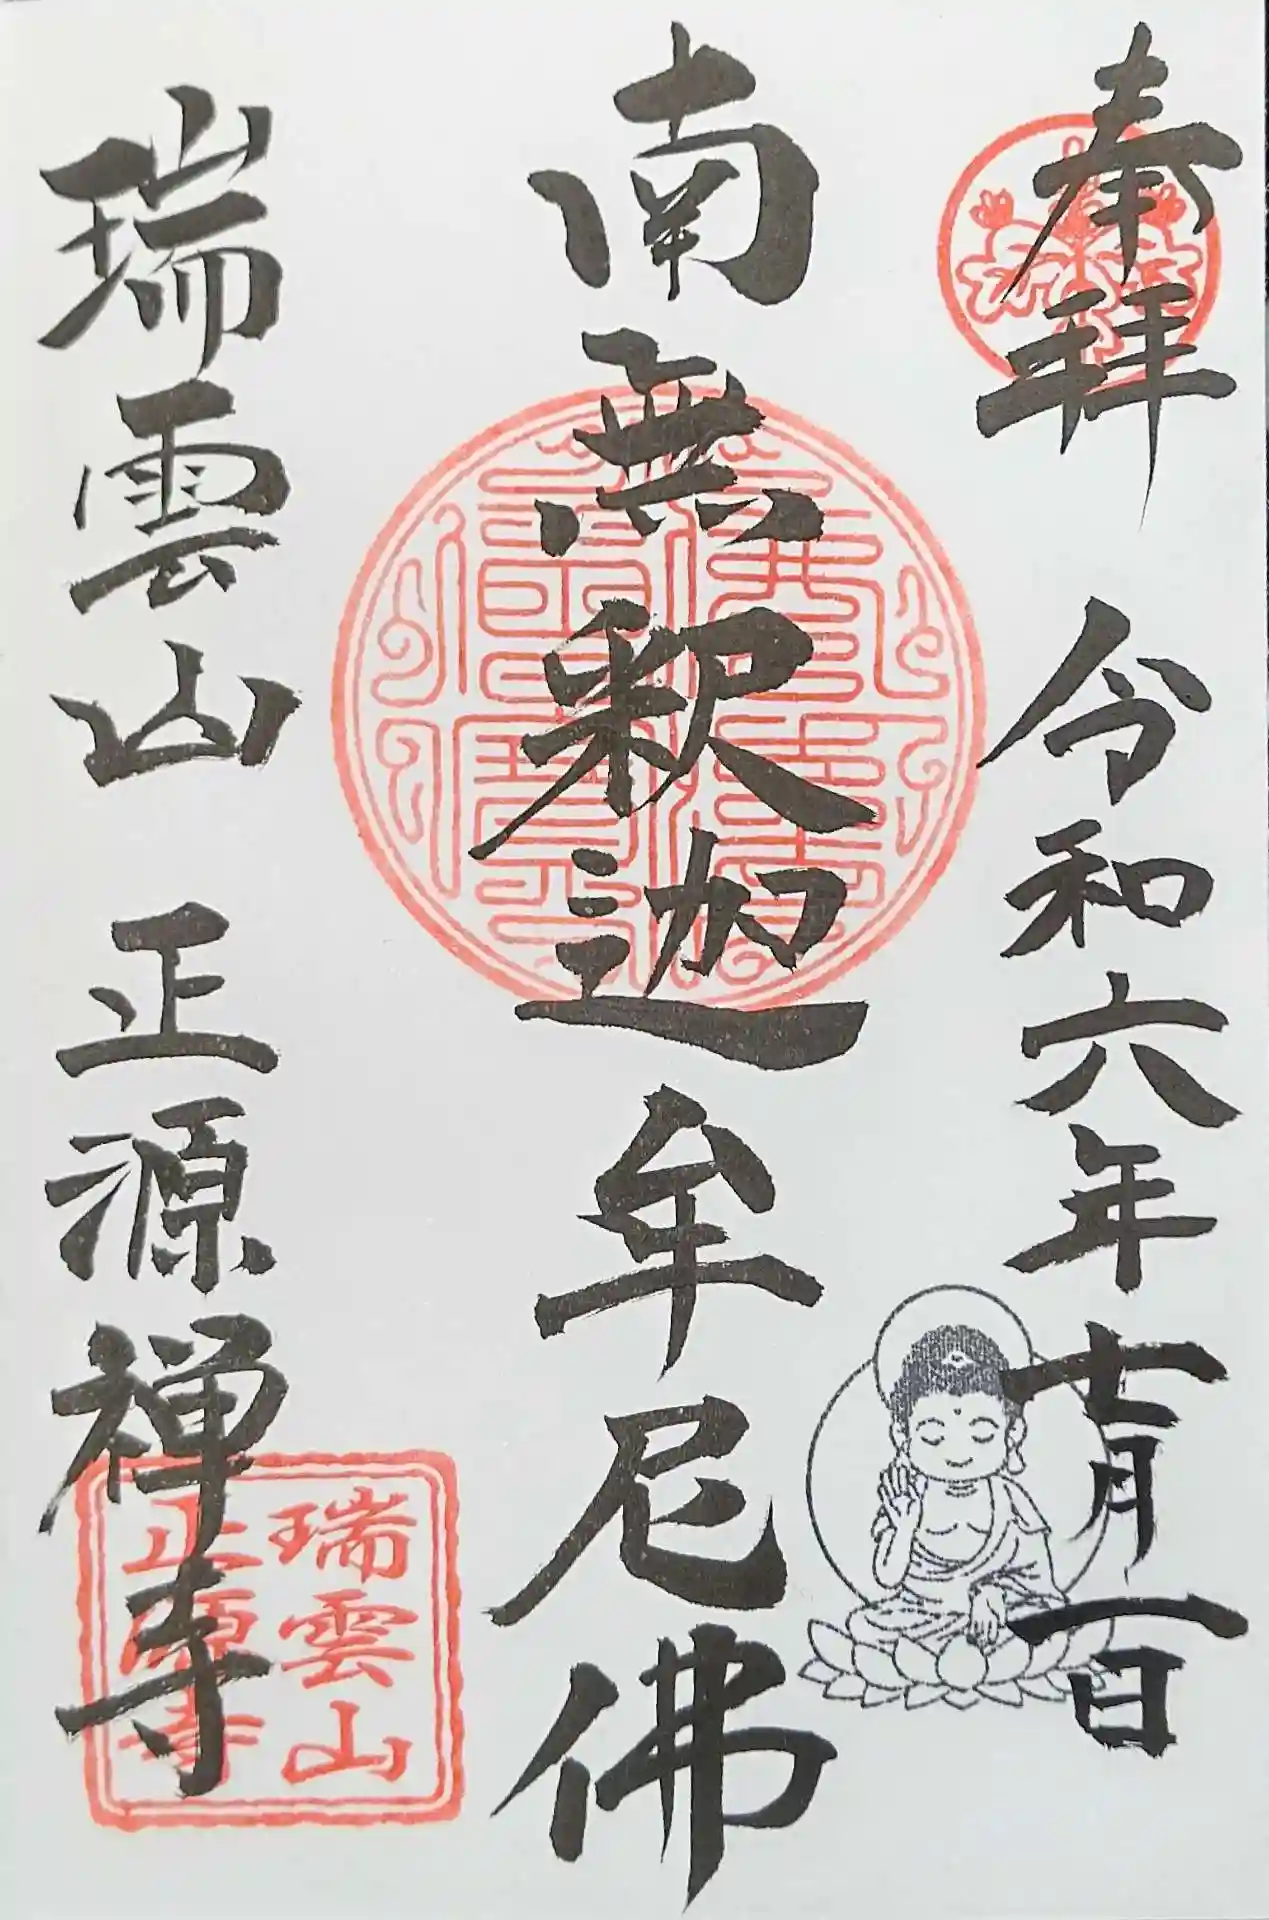 奉拝 令和六年七月一日
南無釈迦牟尼佛
佛法僧寶
瑞雲山 正源禅寺
瑞雲山
正源寺